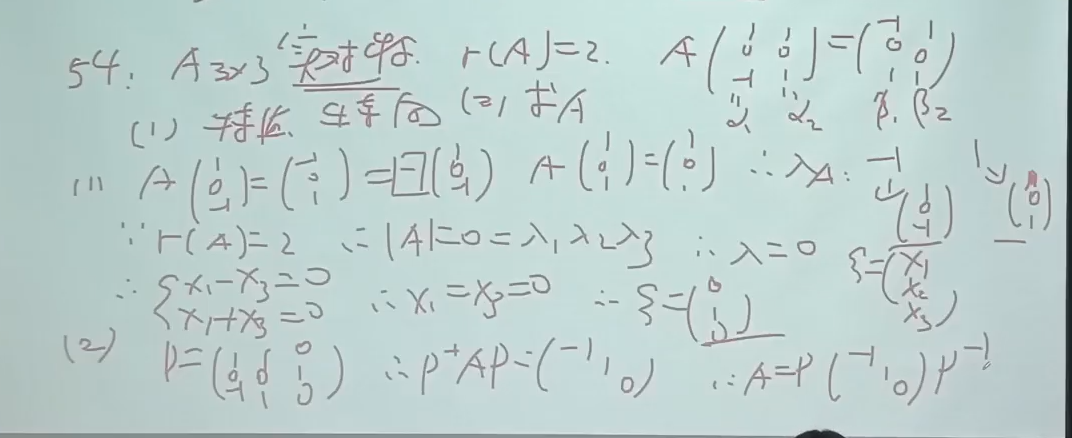 54. A3×3 实对称. r(A)=2. A(1 1; 0 0; -1 1)=(-1 1; 0 0; 1 1)
α1 α2 β1 β2
(1) 特值、 (2) 求A
(1) A(1; 0; -1)=(-1; 0; 1)=(1; 0; -1) A(1; 0; 1)=(1; 0; 1) ∴λA: -1 1 (1; 0; -1) (1; 0; 1)
∵r(A)=2 ∴|A|=0=λ1λ2λ3 ∴λ=0 ξ=(x1; x2; x3)
∴{x1-x3=0 x1+x3=0 ∴x1=x3=0 ∴ξ=(0; 1; 0)
(2) P=(1 1 0; 0 0 1; -1 1 0) ∴P⁻¹AP=(-1 1 0) ∴A=P(-1 1 0)P⁻¹